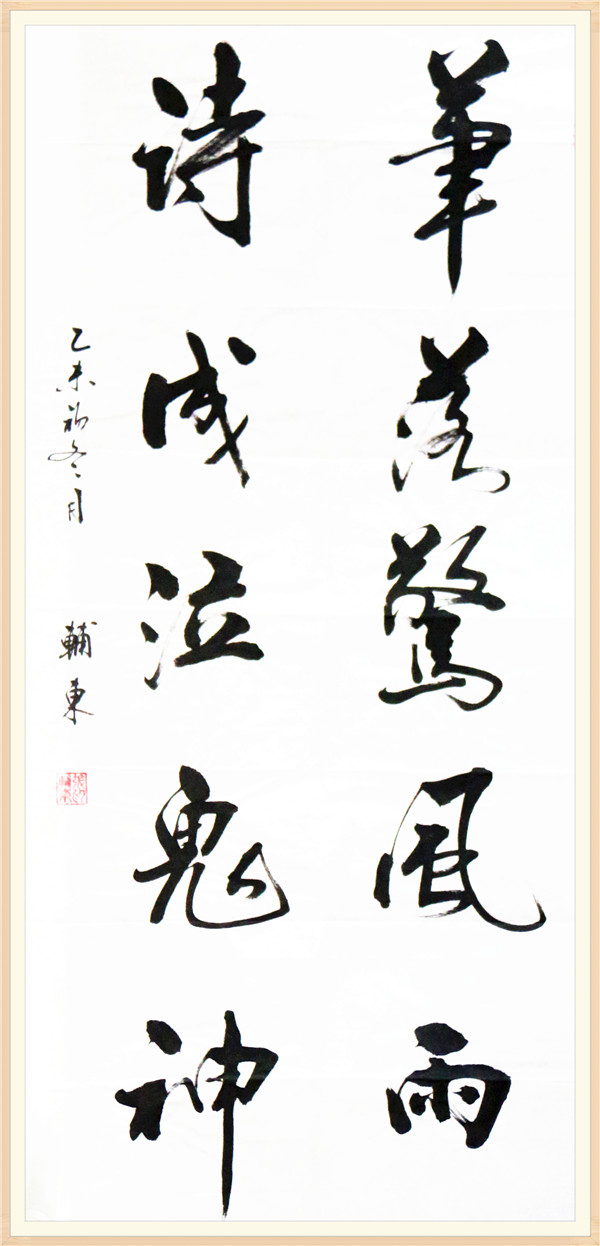 筆落驚風雨
詩成泣鬼神
乙未初冬月 輔東